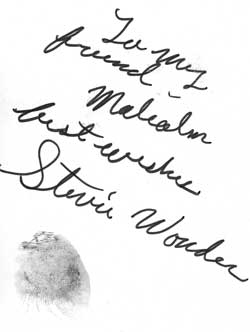 To my
friend -
Malcolm
best wishes
Stevie Wonder